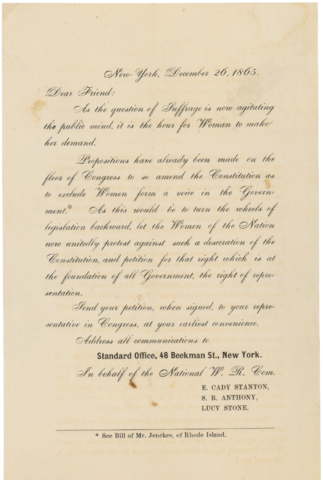 New-York, December 26, 1865.
Dear Friend:
As the question of Suffrage is now agitating
the public mind, it is the hour for Woman to make
her demand.
Propositions have already been made on the
floor of Congress to so amend the Constitution as
to exclude Women form a voice in the Govern-
ment.* As this would be to turn the wheels of
legislation backward, let the Women of the Nation
now unitedly protest against such a desecration of the
Constitution, and petition for that right which is at
the foundation of all Government, the right of repre-
sentation.
Send your petition, when signed, to your repre-
sentative in Congress, at your earliest convenience.
Address all communications to
Standard Office, 48 Beekman St., New York.
In behalf of the National W. R. Com.
E. CADY STANTON,
S. B. ANTHONY,
LUCY STONE.
* See Bill of Mr. Jenckes, of Rhode Island.